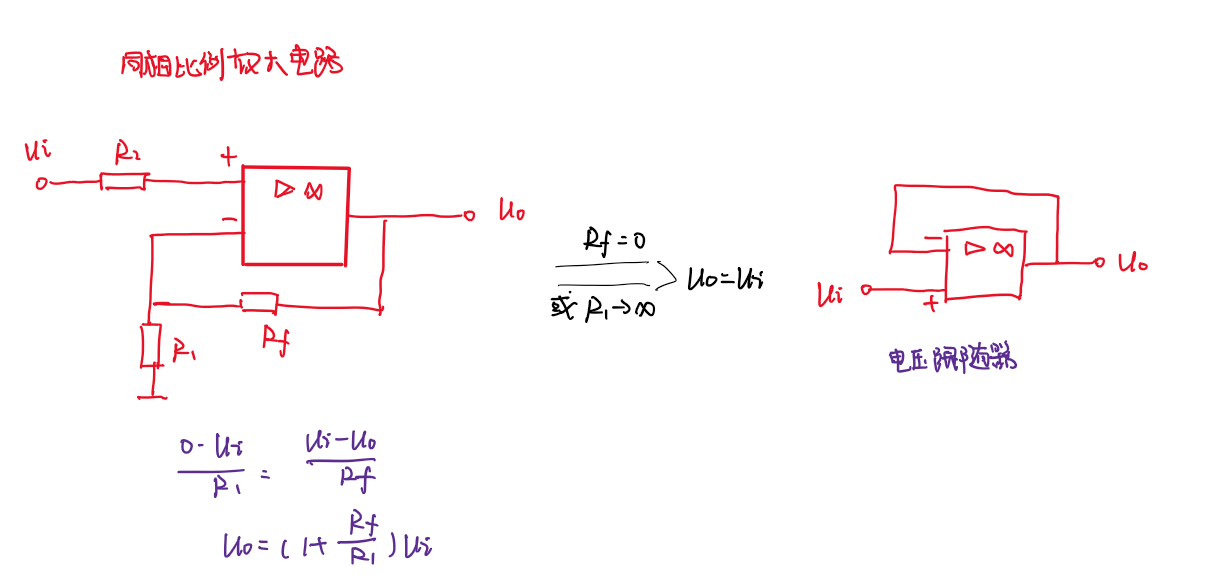 同相比例放大电路
Ui
R2
+
▷ ∞
−
Uo
Rf
R1
(0-Ui)/R1 = (Ui-Uo)/Rf
Uo=(1+Rf/R1)Ui
Rf=0
或 R1→∞
Uo=Ui
−
▷ ∞
Uo
Ui
+
电压跟随器